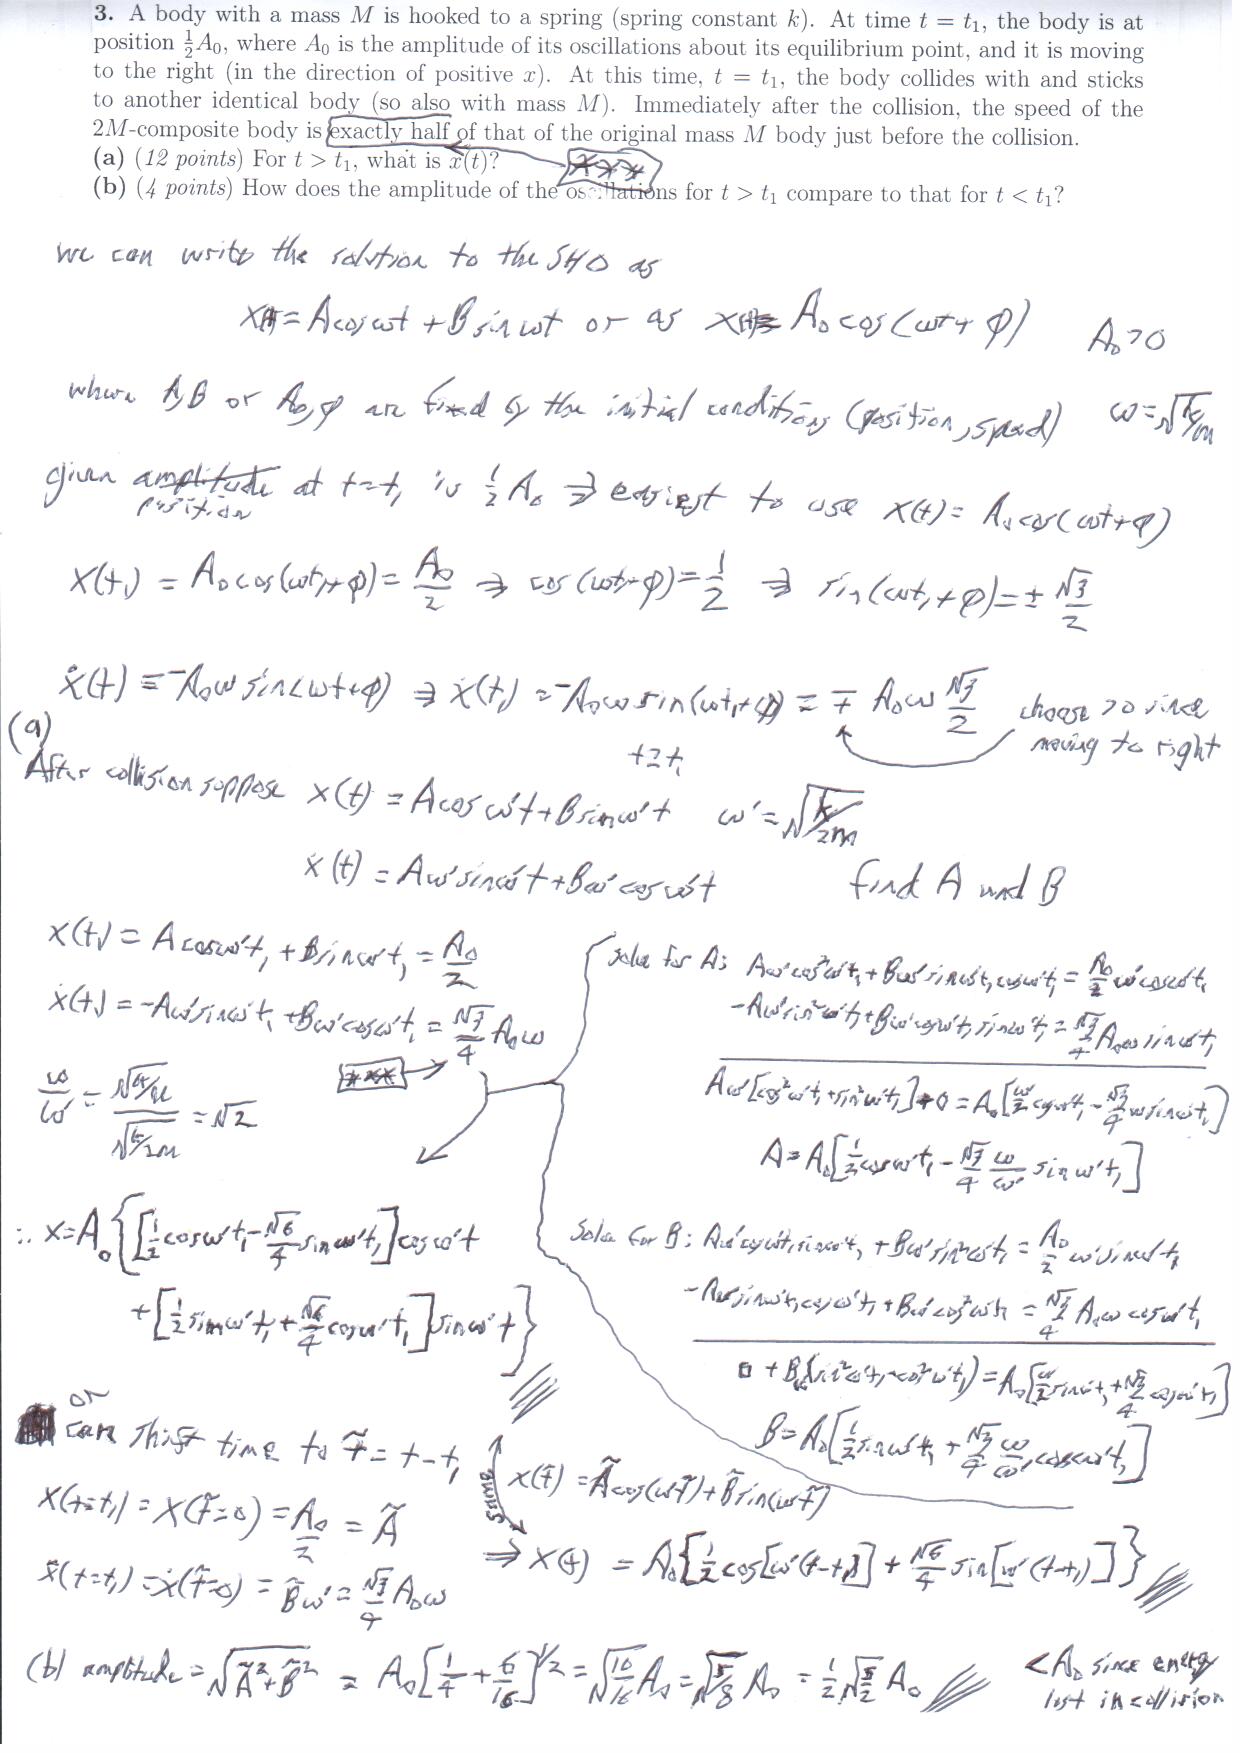 3. A body with a mass M is hooked to a spring (spring constant k). At time t = t₁, the body is at
position ½A₀, where A₀ is the amplitude of its oscillations about its equilibrium point, and it is moving
to the right (in the direction of positive x). At this time, t = t₁, the body collides with and sticks
to another identical body (so also with mass M). Immediately after the collision, the speed of the
2M-composite body is exactly half of that of the original mass M body just before the collision.
(a) (12 points) For t > t₁, what is x(t)?
***
(b) (4 points) How does the amplitude of the oscillations for t > t₁ compare to that for t < t₁?
we can write the solution to the SHO as
x(t) = A cos ωt + B sin ωt or as x(t) = A₀ cos(ωt + φ) A₀ > 0
where A, B or A₀, φ are fixed by the initial conditions (position, speed) ω = √(k/m)
given amplitude at t = t₁ is ½ A₀ ⇒ easiest to use x(t) = A₀ cos(ωt + φ)
position
x(t₁) = A₀ cos(ωt₁ + φ) = A₀/2 ⇒ cos(ωt₁ + φ) = 1/2 ⇒ sin(ωt₁ + φ) = ± √3/2
ẋ(t) = -A₀ω sin(ωt + φ) ⇒ ẋ(t₁) = -A₀ω sin(ωt₁ + φ) = ∓ A₀ω √3/2 choose > 0 since
moving to right
t = t₁
(a)
After collision suppose x(t) = A cos ω't + B sin ω't ω' = √(k/2m)
ẋ(t) = Aω' sin ω't + Bω' cos ω't find A and B
x(t₁) = A cos ω't₁ + B sin ω't₁ = A₀/2
ẋ(t₁) = -Aω' sin ω't₁ + Bω' cos ω't₁ = √3/4 A₀ω
***
ω/ω' = √(k/M) / √(k/2M) = √2
solve for A: Aω' cos² ω't₁ + Bω' sin ω't₁ cos ω't₁ = A₀/2 ω' cos ω't₁
-Aω' sin² ω't₁ + Bω' cos ω't₁ sin ω't₁ = √3/4 A₀ω sin ω't₁
Aω' [cos² ω't₁ + sin² ω't₁] + 0 = A₀ [ω'/2 cos ω't₁ - √3/4 ω sin ω't₁]
A = A₀ [1/2 cos ω't₁ - √3/4 ω/ω' sin ω't₁]
∴ x = A₀ { [1/2 cos ω't₁ - √6/4 sin ω't₁] cos ω't
+ [1/2 sin ω't₁ + √6/4 cos ω't₁] sin ω't }
Solve for B: Aω' cos ω't₁ sin ω't₁ + Bω' sin² ω't₁ = A₀/2 ω' sin ω't₁
-Aω' sin ω't₁ cos ω't₁ + Bω' cos² ω't₁ = √3/4 A₀ω cos ω't₁
0 + Bω' (sin² ω't₁ + cos² ω't₁) = A₀ [ω'/2 sin ω't₁ + √3/4 cos ω't₁]
B = A₀ [1/2 sin ω't₁ + √3/4 ω/ω' cos ω't₁]
or
can shift time to t̃ = t - t₁ x(t̃) = Ã cos(ωt̃) + B̃ sin(ωt̃)
same
x(t=t₁) = x(t̃=0) = A₀/2 = Ã
⇒ x(t) = A₀ { 1/2 cos[ω'(t-t₁)] + √6/4 sin[ω'(t-t₁)] }
ẋ(t=t₁) = ẋ(t̃=0) = B̃ω' = √3/4 A₀ω
(b) amplitude = √(Ã² + B̃²) = A₀ [1/4 + 6/16]^1/2 = √(10/16) A₀ = √(5/8) A₀ = 1/2 √(5/2) A₀ < A₀ since energy
lost in collision